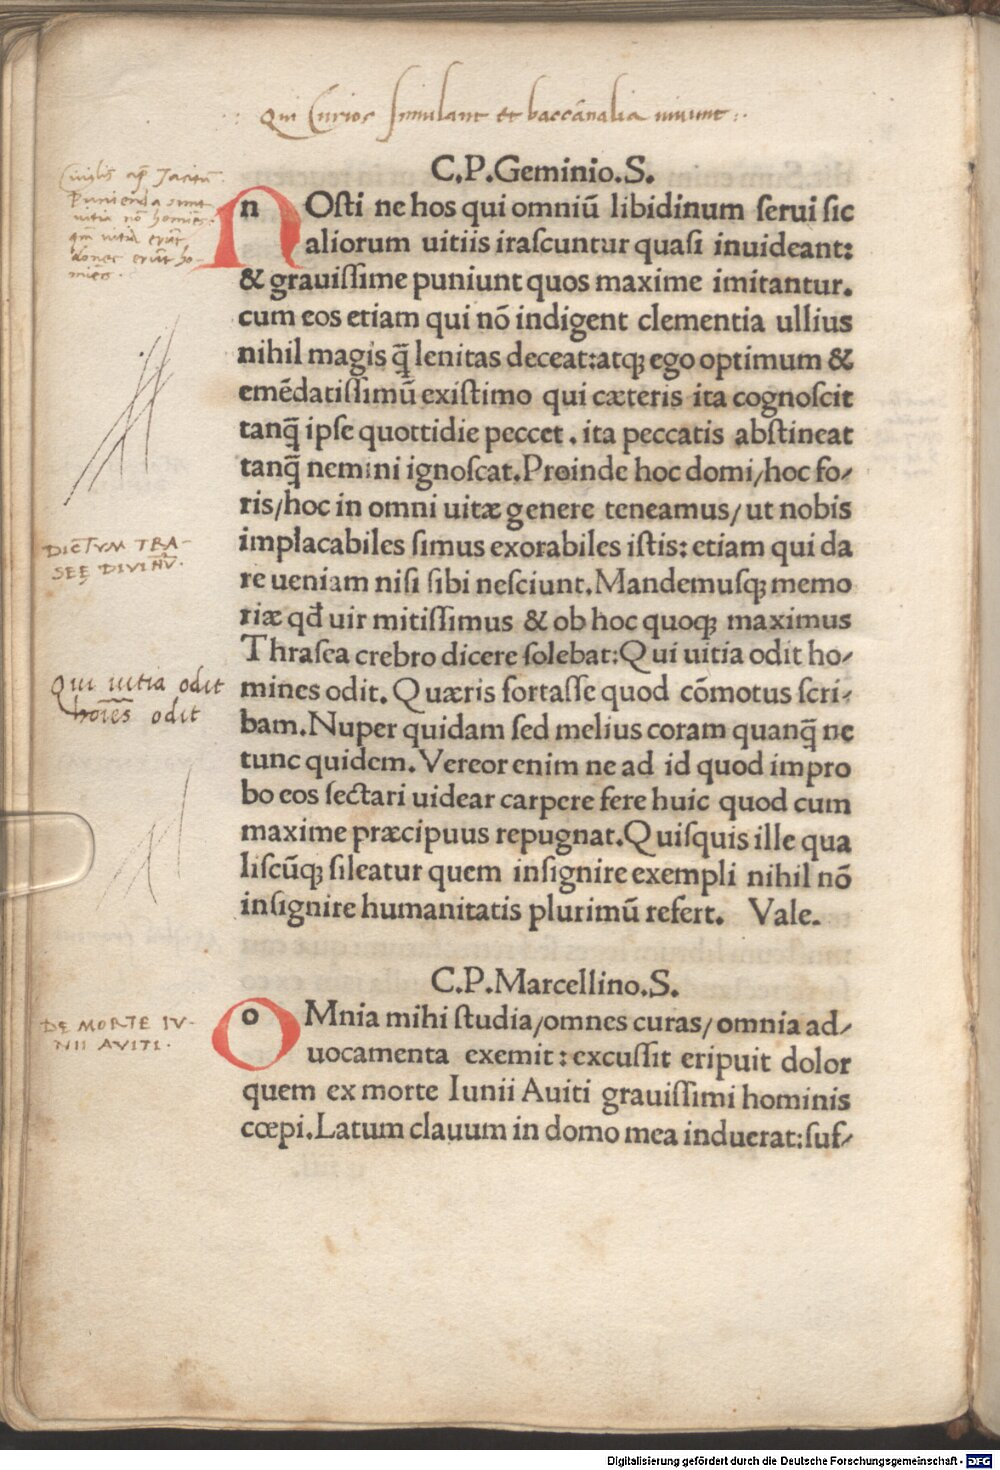 Qui Curios simulant et baccãnalia uiuunt
C.P.Geminio.S.
nOsti ne hos qui omniũ libidinum serui sic
aliorum uitiis irascuntur quasi inuideant:
& grauissime puniunt quos maxime imitantur.
cum eos etiam qui nõ indigent clementia ullius
nihil magis q̃ lenitas deceat:atqꝫ ego optimum &
emẽdatissimũ existimo qui cæteris ita cognoscit
tanq̃ ipse quottidie peccet. ita peccatis abstineat
tanq̃ nemini ignoscat.Proinde hoc domi/hoc fo-
ris/hoc in omni uitæ genere teneamus/ut nobis
implacabiles simus exorabiles istis: etiam qui da
re ueniam nisi sibi nesciunt.Mandemusqꝫ memo
riæ qđ uir mitissimus & ob hoc quoqꝫ maximus
Thrasea crebro dicere solebat:Qui uitia odit ho-
mines odit. Quæris fortasse quod cõmotus scri-
bam.Nuper quidam sed melius coram quanq̃ ne
tunc quidem. Vereor enim ne ad id quod impro
bo eos sectari uidear carpere fere huic quod cum
maxime præcipuus repugnat.Quisquis ille qua
liscũqꝫ sileatur quem insignire exempli nihil nõ
insignire humanitatis plurimũ refert. Vale.
C.P.Marcellino.S.
oMnia mihi studia/omnes curas/omnia ad-
uocamenta exemit: excussit eripuit dolor
quem ex morte Iunii Auiti grauissimi hominis
cœpi.Latum clauum in domo mea induerat:suf-
Punienda sunt
uitia nõ homiẽs
uitia erũt
donec erũt ho-
miẽs.
DICTVM TRA-
SEĘ DIVINV̄.
Qui uitia odit
hoīes odit
DE MORTE IV-
NII AVITI.
Digitalisierung gefördert durch die Deutsche Forschungsgemeinschaft - DFG